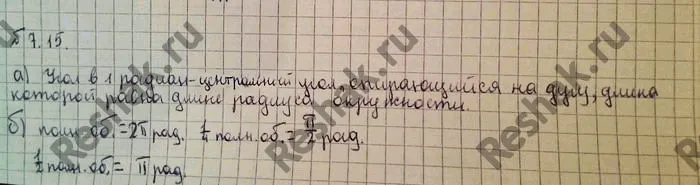 № 7.15.
а) Угол в 1 радиан-центральный угол, опирающийся на дугу, длина
которой равна длине радиуса окружности.
б) полн. об. = 2π рад. 1/4 полн. об. = π/2 рад.
1/2 полн. об. = π рад.
Reshak.ru
Reshak.ru
Reshak.ru
Reshak.ru